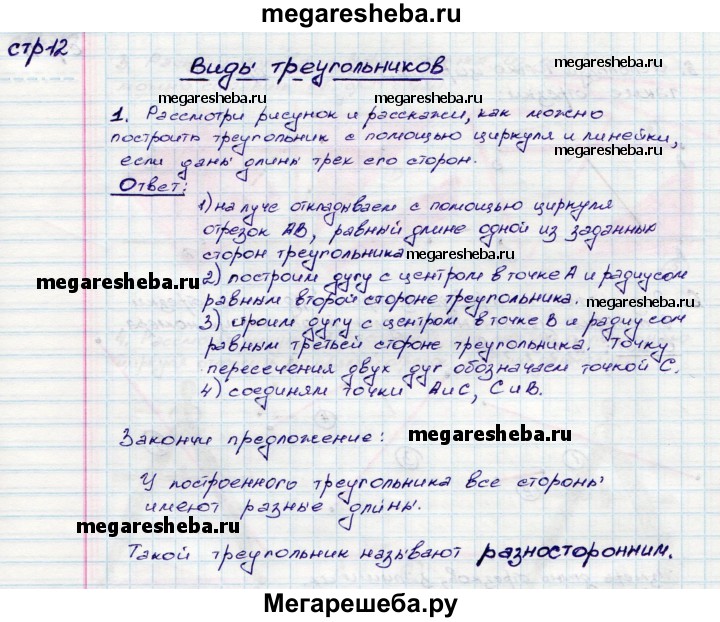 megaresheba.ru
стр12
Виды треугольников
megaresheba.ru megaresheba.ru megaresheba.ru
1. Рассмотри рисунок и расскажи, как можно
построить треугольник с помощью циркуля и линейки,
megaresheba.ru
если даны длины трех его сторон.
Ответ:
1) на луче откладываем с помощью циркуля
отрезок АВ, равный длине одной из заданных
сторон треугольника megaresheba.ru
megaresheba.ru
2) построим дугу с центром в точке А и радиусом
равным второй стороне треугольника. megaresheba.ru
3) строим дугу с центром в точке В и радиусом
равным третьей стороне треугольника. Точку
пересечения двух дуг обозначаем точкой С.
4) соединям точки А и С, С и В.
Закончи предложение: megaresheba.ru
У построенного треугольника все стороны
имеют разные длины.
megaresheba.ru
Такой треугольник называют разносторонним.
Мегарешеба.ру